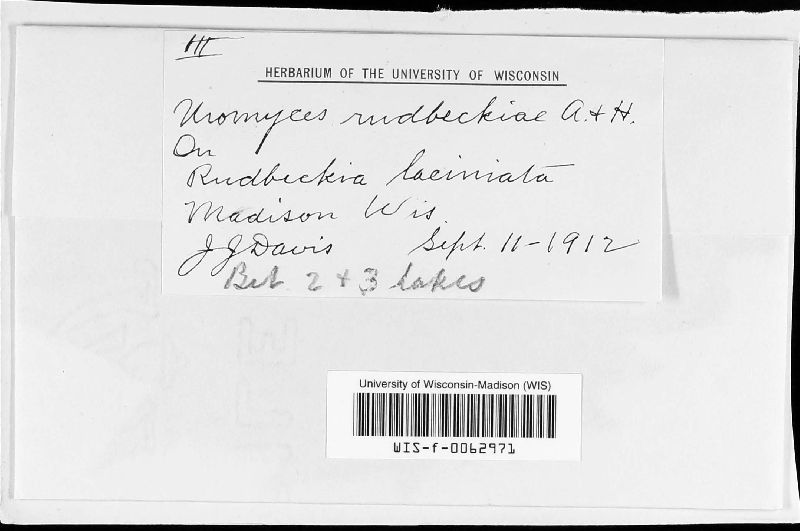 III
HERBARIUM OF THE UNIVERSITY OF WISCONSIN
Uromyces rudbeckiae A. & H.
On
Rudbeckia laciniata
Madison Wis.
J J Davis Sept. 11-1912
Bet. 2 + 3 Lakes
University of Wisconsin-Madison (WIS)
WIS-f-0062971